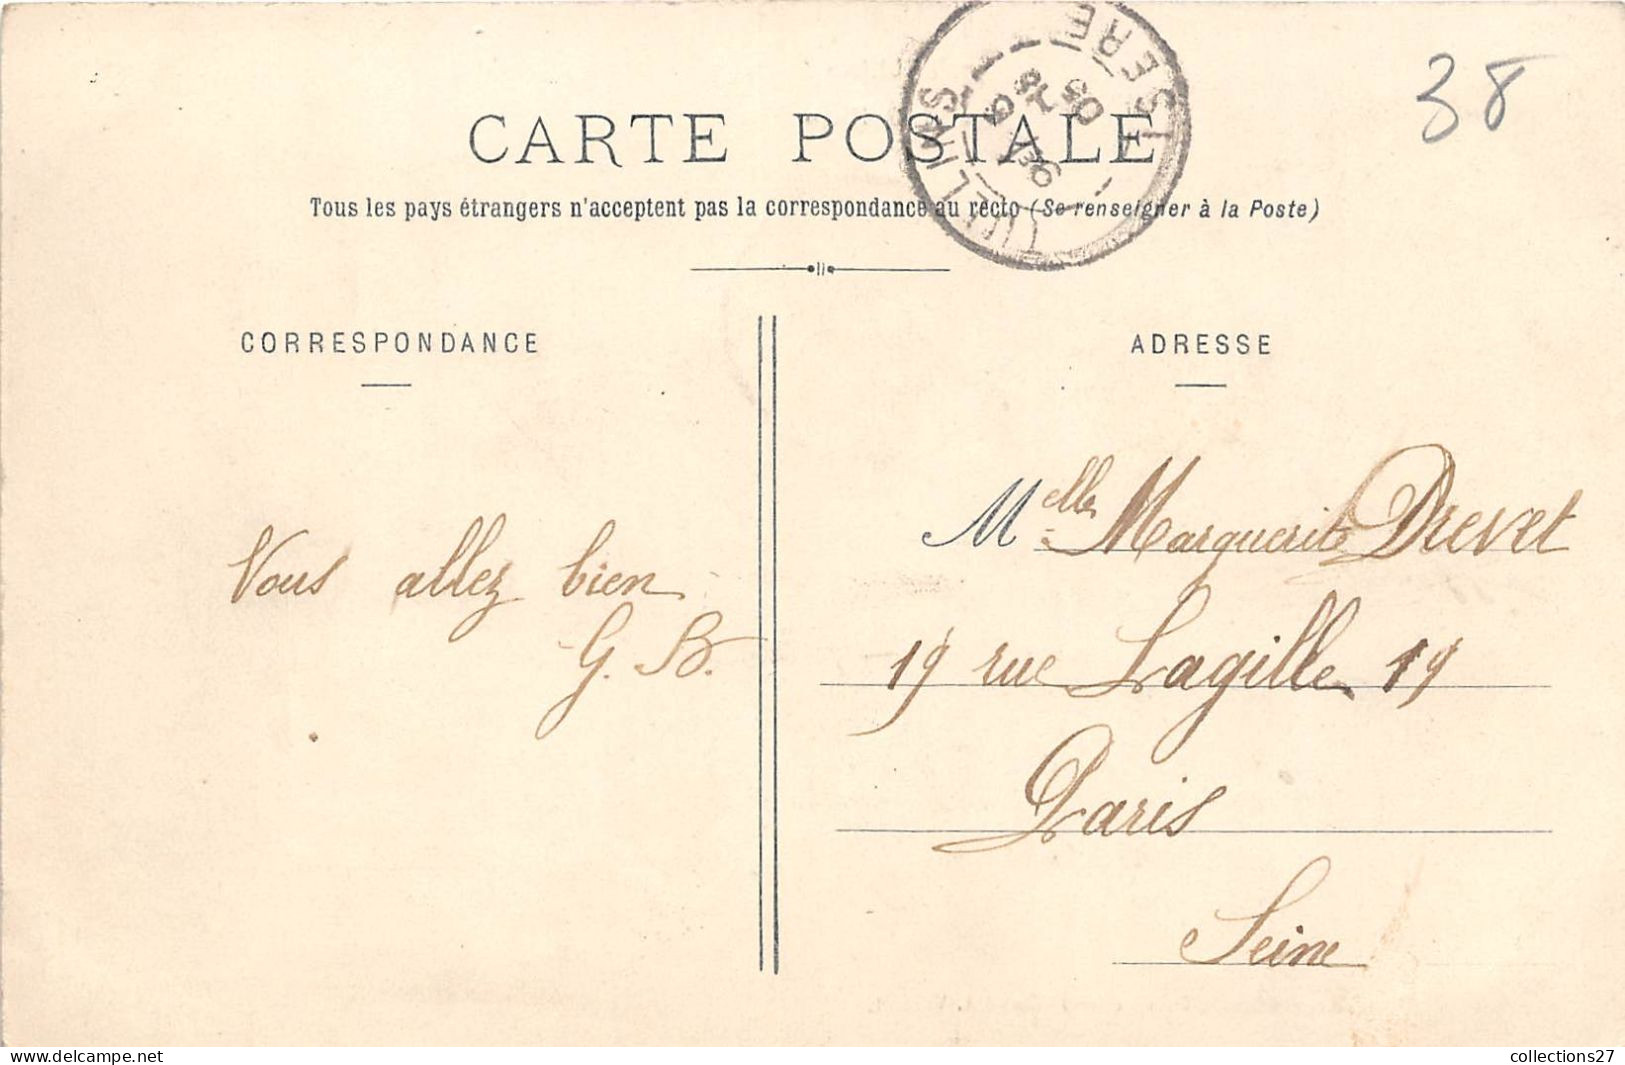 38
CARTE POSTALE
Tous les pays étrangers n'acceptent pas la correspondance au recto (Se renseigner à la Poste)
TULLINS ISERE
CORRESPONDANCE
ADRESSE
Vous allez bien
G. B.
Melle Marguerite Drevet
19 rue Lagille 19
Paris
Seine
collections27